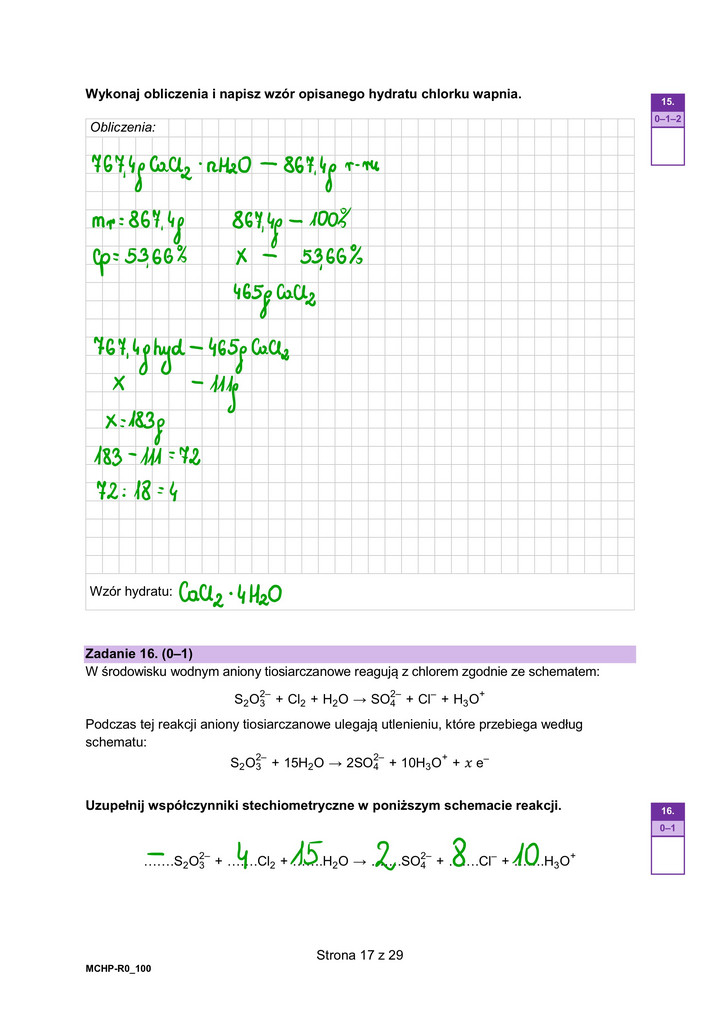 Wykonaj obliczenia i napisz wzór opisanego hydratu chlorku wapnia.
15.
0–1–2
Obliczenia:
767,4g CaCl₂ · nH₂O — 867,4g r-ru
mr = 867,4g 867,4g — 100%
Cp = 53,66% x — 53,66%
465g CaCl₂
767,4g hyd — 465g CaCl₂
x — 111g
x = 183g
183 - 111 = 72
72 : 18 = 4
Wzór hydratu: CaCl₂ · 4H₂O
Zadanie 16. (0–1)
W środowisku wodnym aniony tiosiarczanowe reagują z chlorem zgodnie ze schematem:
S₂O₃²⁻ + Cl₂ + H₂O → SO₄²⁻ + Cl⁻ + H₃O⁺
Podczas tej reakcji aniony tiosiarczanowe ulegają utlenieniu, które przebiega według
schematu:
S₂O₃²⁻ + 15H₂O → 2SO₄²⁻ + 10H₃O⁺ + x e⁻
Uzupełnij współczynniki stechiometryczne w poniższym schemacie reakcji.
16.
0–1
.......S₂O₃²⁻ + ...4...Cl₂ + ...15...H₂O → ...2...SO₄²⁻ + ...8...Cl⁻ + ...10...H₃O⁺
Strona 17 z 29
MCHP-R0_100